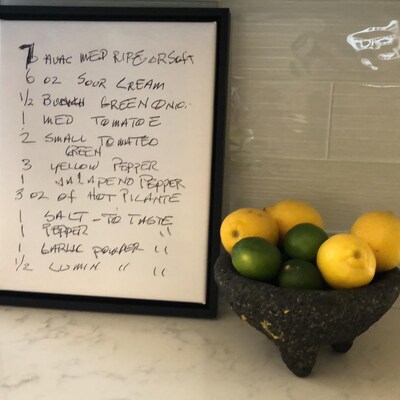 7 AVAC MED RIPE OR SOFT
6 OZ SOUR CREAM
1/2 BUNCH GREEN ONIO.
1 MED TOMATOE
2 SMALL TOMATEO
GREEN
3 YELLOW PEPPER
1 JALAPENO PEPPER
3 OZ OF HOT PICANTE
1 SALT - TO TASTE
1 PEPPER " "
1 GARLIC POWDER " "
1/2 CUMIN " "